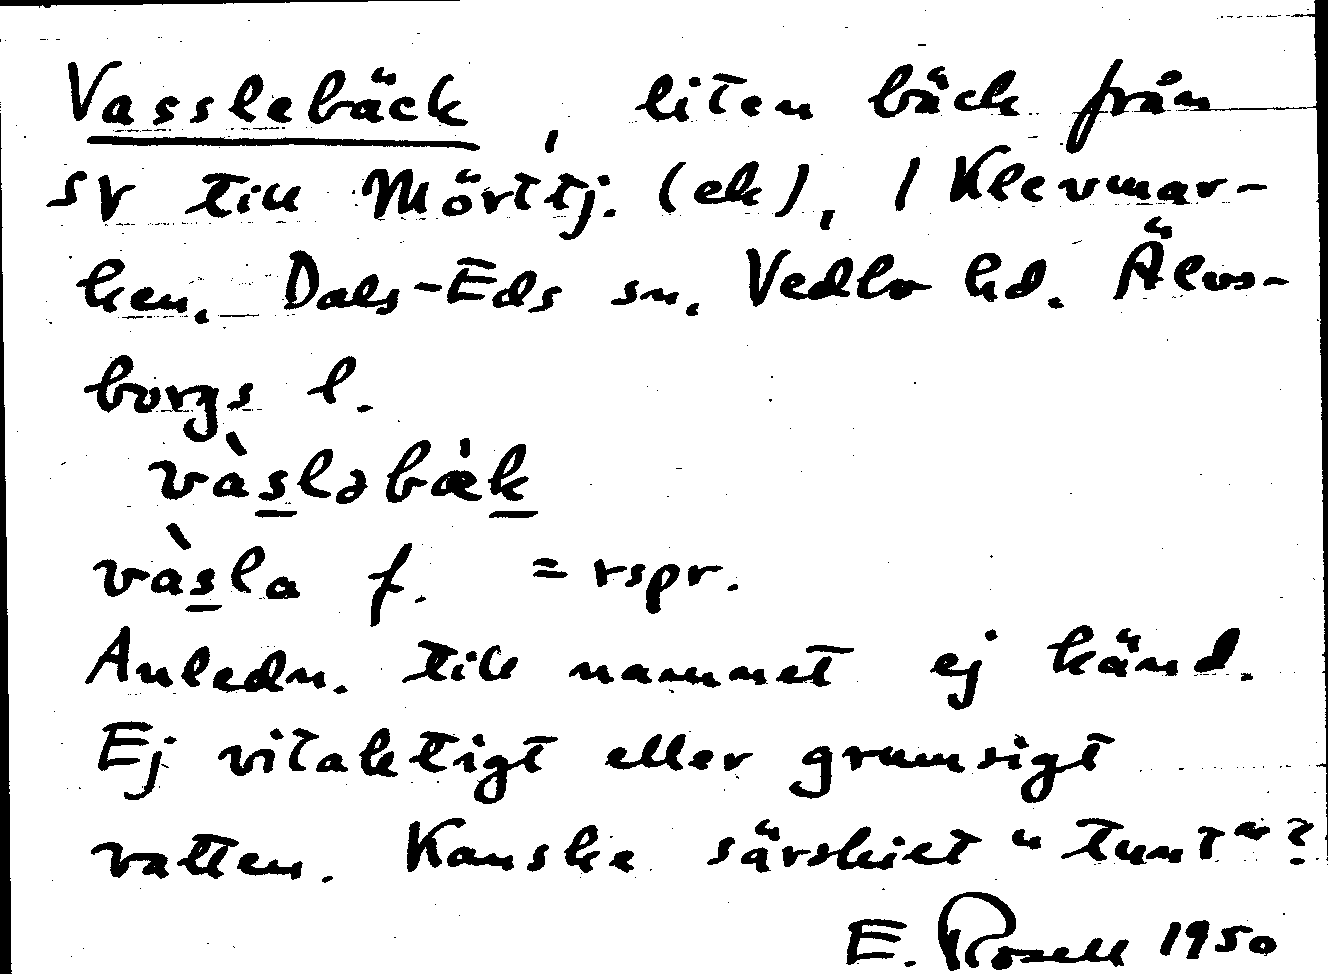 Vasslebäck, liten bäck från
SV till Mörttj. (ek), i Klevmar-
ken. Dals-Eds sn. Vedbo hd. Älvs-
borgs l.
vàsləbæ̀k
vàsla f. = rspr.
Anledn. till namnet ej känd.
Ej vitaktigt eller grumsigt
vatten. Kanske särskilt "tunt"?
E. Rosell 1950